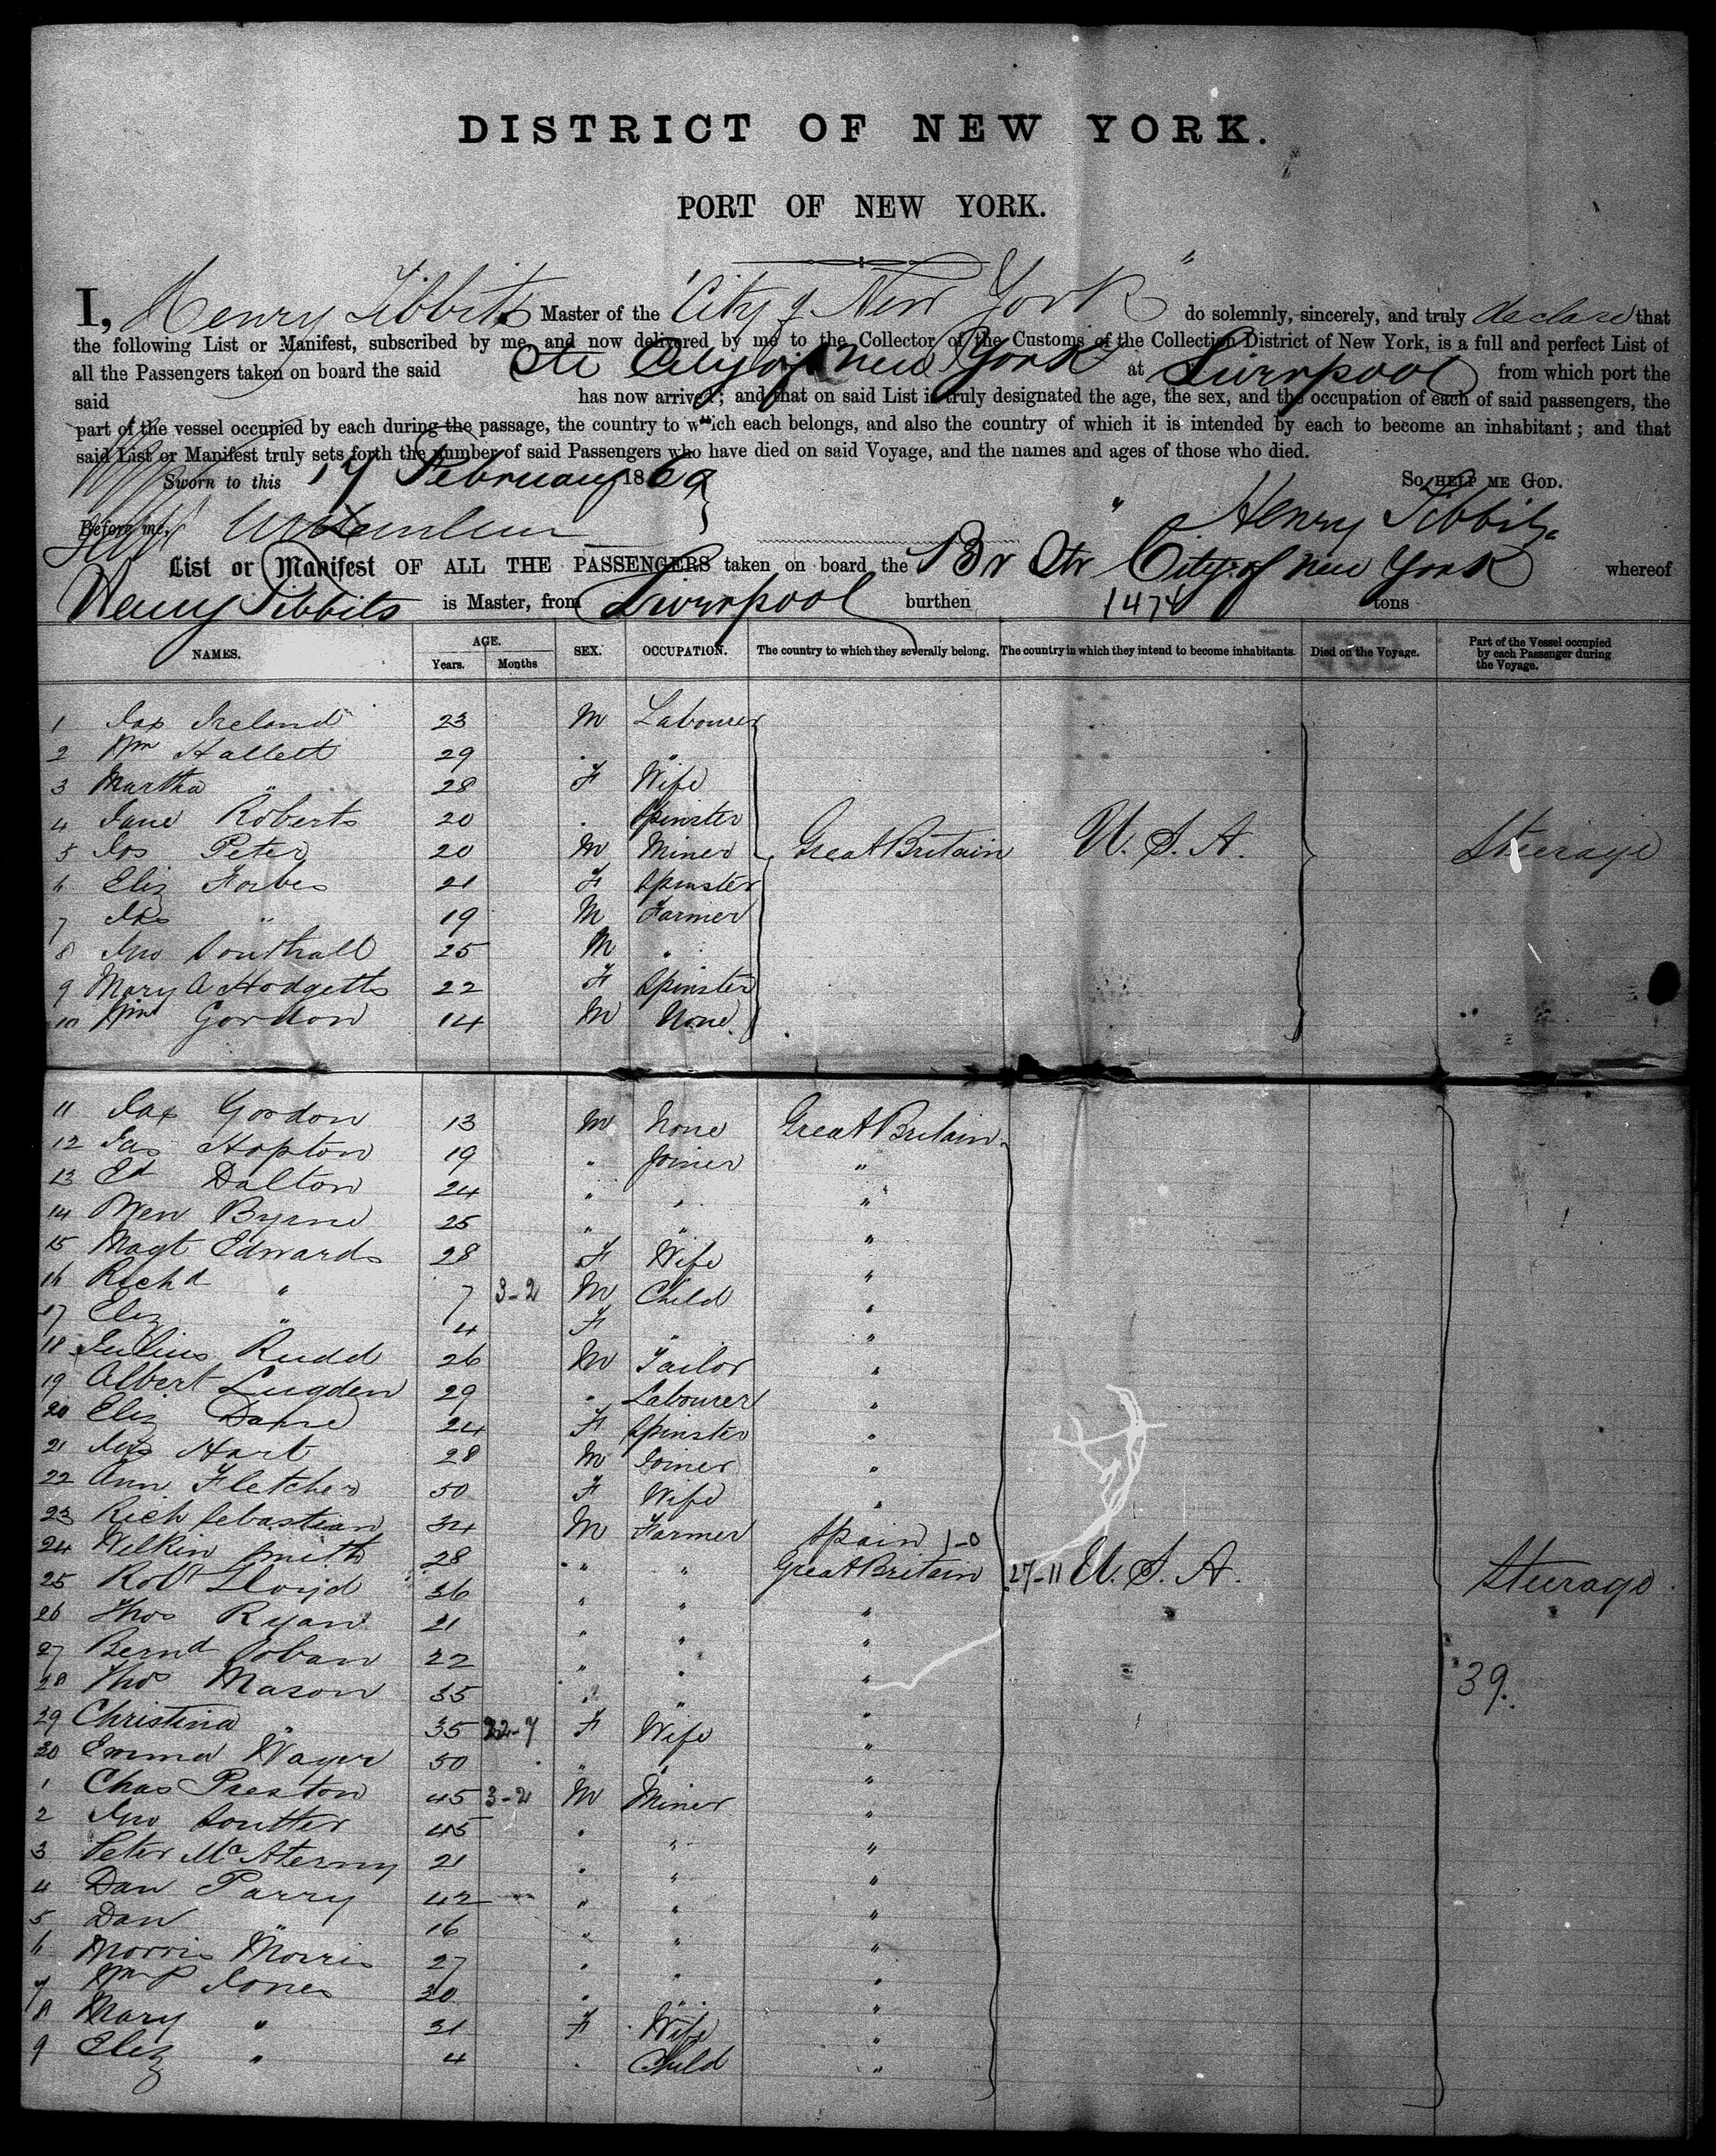 DISTRICT OF NEW YORK.
PORT OF NEW YORK.
I, Henry Tibbits Master of the "City of New York" do solemnly, sincerely, and truly declare that
the following List or Manifest, subscribed by me, and now delivered by me to the Collector of the Customs of the Collection District of New York, is a full and perfect List of
all the Passengers taken on board the said Str City of New York at Liverpool from which port the
said has now arrived; and that on said List is truly designated the age, the sex, and the occupation of each of said passengers, the
part of the vessel occupied by each during the passage, the country to which each belongs, and also the country of which it is intended by each to become an inhabitant; and that
said List or Manifest truly sets forth the number of said Passengers who have died on said Voyage, and the names and ages of those who died.
Sworn to this 17 February 1869 So HELP ME GOD.
Before me, Henry Tibbits
List or Manifest OF ALL THE PASSENGERS taken on board the Br Str City of New York whereof
Henry Tibbits is Master, from Liverpool burthen 1474 tons
NAMES. AGE. Years. Months SEX. OCCUPATION. The country to which they severally belong. The country in which they intend to become inhabitants. Died on the Voyage. Part of the Vessel occupied by each Passenger during the Voyage.
1 Jas Ireland 23 M Labourer
2 Wm Hallett 29 " "
3 Martha " 28 F Wife
4 Jane Roberts 20 " Spinster
5 Jos Peter 20 M Miner Great Britain U. S. A. Steerage
6 Eliz Forbes 21 F Spinster
7 Jas " 19 M Farmer
8 Jno Southall 25 M "
9 Mary A Hodgetts 22 F Spinster
10 Wm Gordon 14 M None
11 Jas Gordon 13 M None Great Britain
12 Jas Hopton 19 " Joiner "
13 Ed Dalton 24 " " "
14 Wm Byrne 25 " " "
15 Magt Edwards 28 F Wife "
16 Richd " 7 3-2 M Child "
17 Eliz " 4 F " "
18 Julius Rudd 26 M Tailor "
19 Albert Lugden 29 " Labourer "
20 Eliz Dane 24 F Spinster "
21 Jas Hart 28 M Joiner "
22 Ann Fletcher 50 F Wife "
23 Rich Sebastian 34 M Farmer Spain 1-0
24 Wilkin Smith 28 " " Great Britain 27-11 U. S. A. Steerage
25 Robt Lloyd 36 " " "
26 Thos Ryan 21 " " "
27 Bernd Coban 22 " " "
28 Thos Mason 35 " " " 39.
29 Christina " 35 22-7 F Wife "
30 Emma Wager 50 " " "
1 Chas Preston 45 3-2 M Miner "
2 Jno Soutter 45 " " "
3 Peter McAterny 21 " " "
4 Dan Parry 42 " " "
5 Dan " 16 " " "
6 Morris Morris 27 " " "
7 Wm P Jones 30 " " "
8 Mary " 31 F Wife "
9 Eliz " 4 " Child "